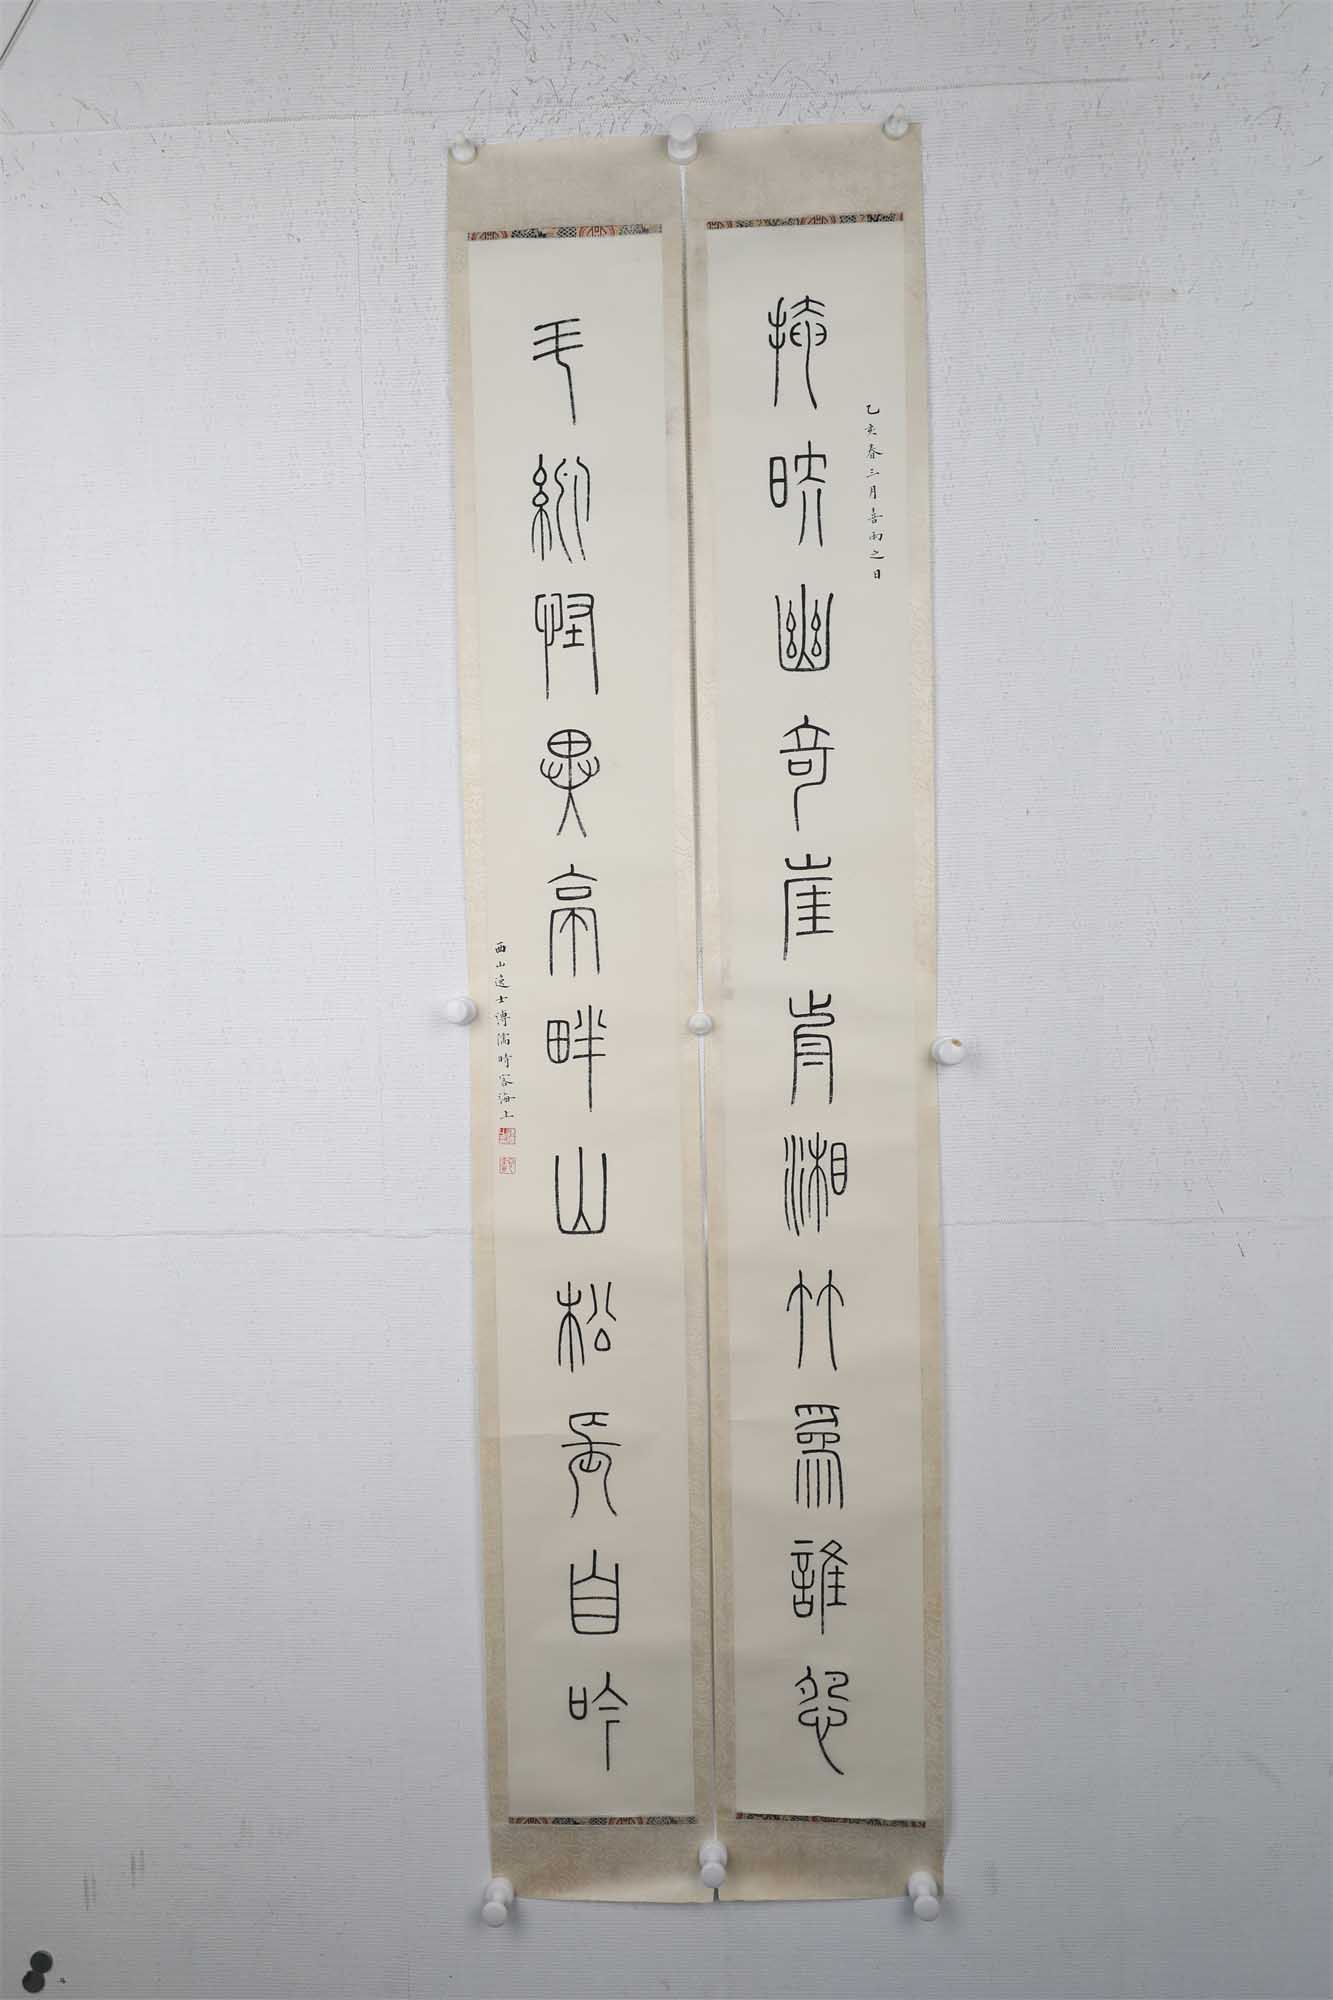 掩映幽奇崖前湘竹為誰怨
乙亥春三月喜雨之日
怪異亭畔山松長自吟
西山逸士溥儒時客海上